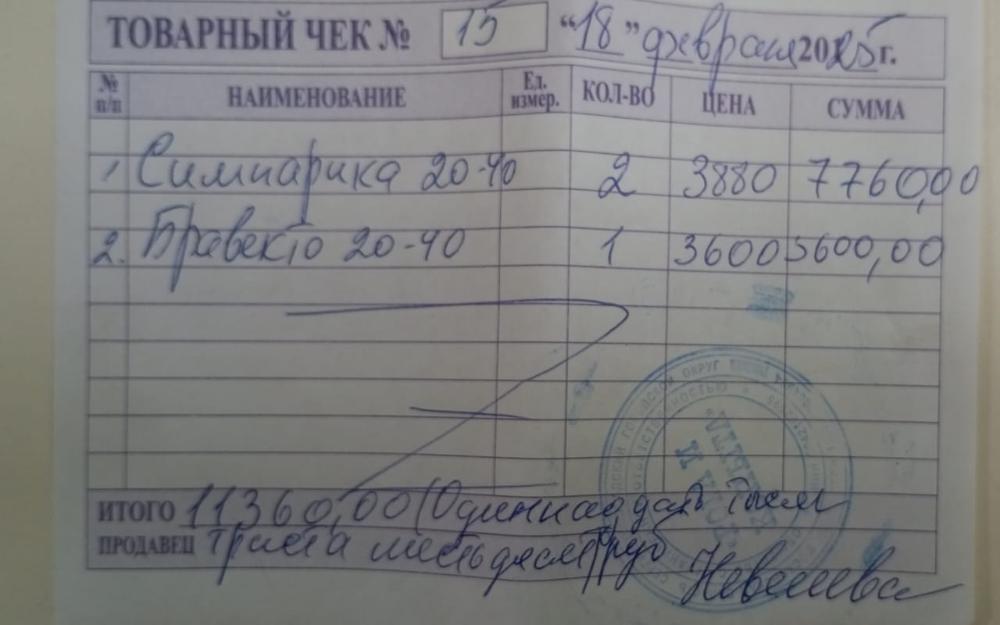 ТОВАРНЫЙ ЧЕК № 15 "18" февраля 2025 г.
№ п/п НАИМЕНОВАНИЕ Ед. измер. КОЛ-ВО ЦЕНА СУММА
1 Симпарика 20-40 2 3880 7760,00
2. Бравекто 20-40 1 3600 3600,00
ИТОГО 11360,00 (Одиннадцать тысяч
ПРОДАВЕЦ триста шестьдесят) руб